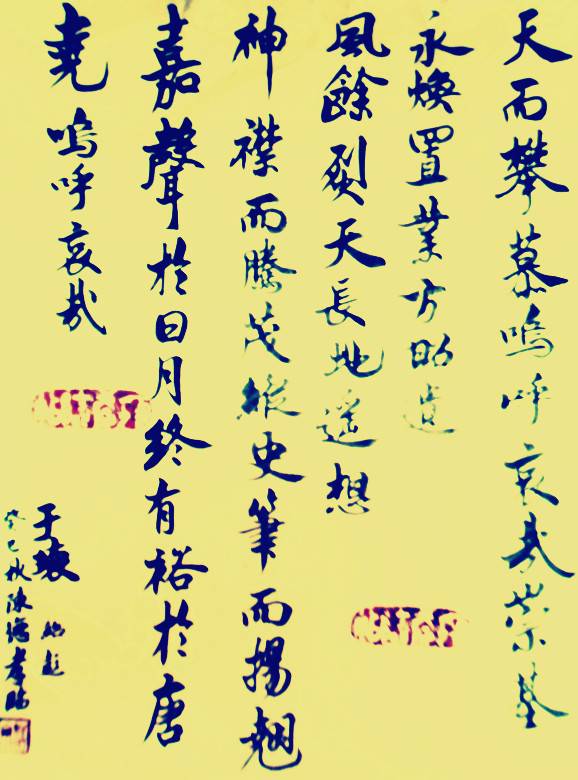 天而攀慕嗚呼哀哉崇基
永煥置業方昭遺
風餘烈天長地遥想
神襟而騰茂縱史筆而揚翹
嘉聲於日月終有裕於唐
堯嗚呼哀哉
癸巳秋陳